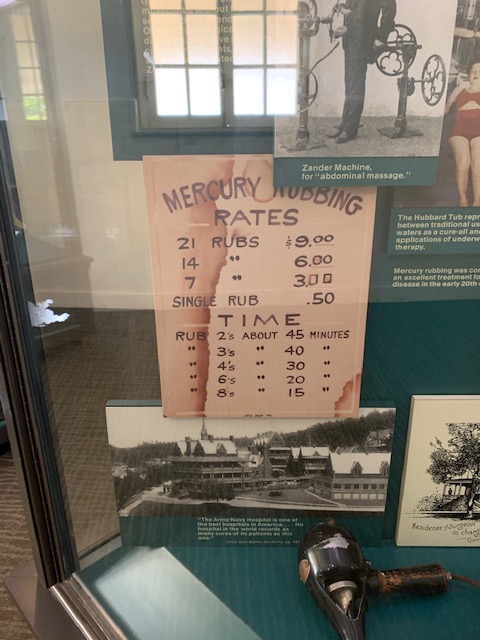 Zander Machine,
for "abdominal massage."
MERCURY RUBBING
RATES
21 RUBS $9.00
14 " 6.00
7 " 3.00
SINGLE RUB .50
TIME
RUB 2's ABOUT 45 MINUTES
" 3's " 40 "
" 4's " 30 "
" 6's " 20 "
" 8's " 15 "
The Hubbard Tub repr
between traditional us
waters as a cure-all and
applications of underw
therapy.
Mercury rubbing was con
an excellent treatment fo
disease in the early 20th c
"The Army-Navy Hospital is one of
the best hospitals in America. . . . No
hospital in the world records as
many cures of its patients as this
one."
Residence of Surgeon
in char